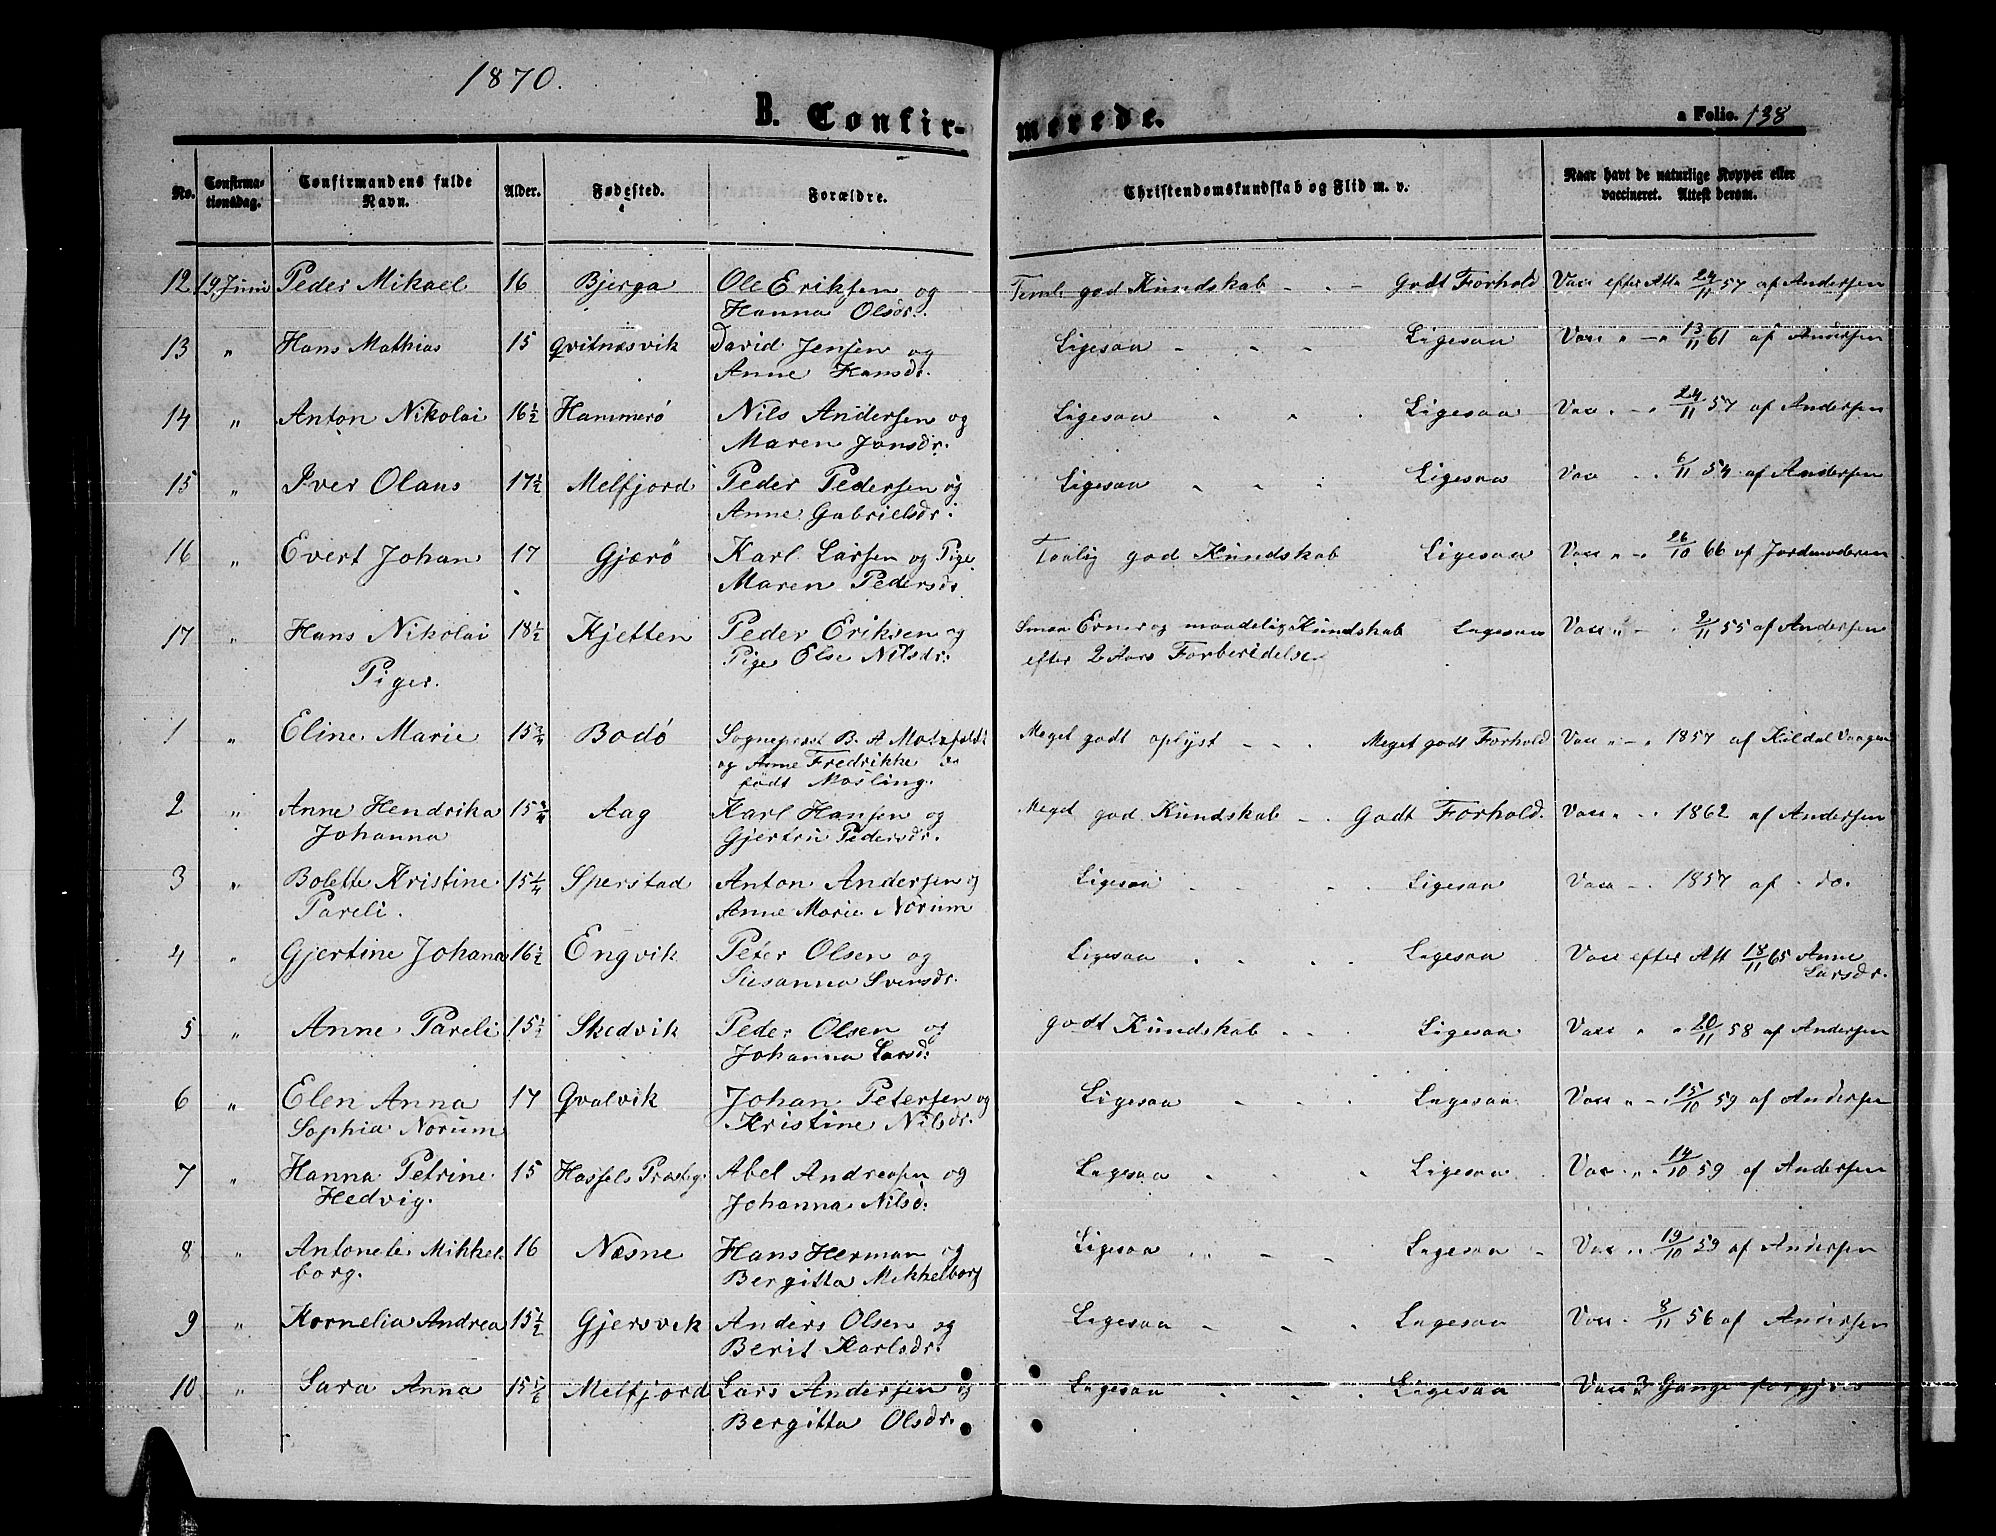 1870.
B. Confir-
merede.
a Folio. 138
No.
Confirma-
tionsdag.
Confirmandens fulde
Navn.
Alder.
Fødested.
Forældre.
Christendomskundskab og Flid m. v.
Naar havt de naturlige Kopper eller
vaccineret. Attest derom.
12 19 Juni Peder Mikael 16 Bjerga Ole Eriksen og god Kundskab - - - Godt Forhold Vacc efter Atta 24/11 57 af Andersen
Hanna Olsdr.
13 " Hans Mathias 15 Qvitnæsvik David Jensen og Ligesaa - - - Ligesaa Vacc " - " 13/11 61 af Andersen
Anne Hansdr.
14 " Anton Nikolai 16 1/2 Hammerø Nils Andersen og Ligesaa " " . Ligesaa Vacc . - . 24/11 57 af Andersen
Maren Jonsdr.
15 " Iver Olaus 17 1/2 Melfjord Peder Pedersen og Ligesaa " " . Ligesaa Vacc - . 6/11 54 af Andersen
Anne Gabrielsdr.
16 " Evert Johan 17 Gjærø Karl Larsen og Pige Taalig god Kundskab Ligesaa Vacc " - " 26/10 66 af Jordmoderen
Maren Pedersdr.
17 " Hans Nikolai 18 1/2 Kjetten Peder Eriksen og Smaa Evner og maadelig Kundskab Ligesaa Vacc " - . 2/11 55 af Andersen
Pige Else Nilsdr. efter 2 Aars Forberedelse
Piger.
1 " Eline Marie 15 3/4 Bodø Sogneprest B. A Motzfeldt Meget godt oplyst - - . Meget godt Forhold Vacc " - " 1857 af Kildal Vaagen
og Anne Fredrikke
født Morling.
2 " Anne Hendrika 15 3/4 Aag Karl Hansen og Meget god Kundskab - . Godt Forhold. Vacc " - . 1862 af Andersen
Johanna Gjertru Pedersdr.
3 " Bolette Kristine 15 1/4 Sperstad Anton Andersen og Ligesaa - . . . Ligesaa Vacc - . 1857 af - do.
Pareli. Anne Marie Norum
4 " Gjertine Johana 16 1/2 Engvik Peter Olsen og Ligesaa . . . Ligesaa Vacc efter Att 18/11 65 Anne
Susanna Svensdr. Larsdr.
5 " Anne Pareli 15 1/2 Skedvik Peder Olsen og godt Kundskab - - . Ligesaa Vacc " " 20/11 58 af Andersen
Johanna Larsd:
6 " Elen Anna 17 Qvalvik Johan Petersen og Ligesaa - - . Ligesaa Vacc " - . 15/10 59 af Andersen
Sophia Norum Kristine Nilsdr.
7 " Hanna Petrine 15 Hassels Præsteg. Abel Andreasen og Ligesaa . . . Ligesaa Vacc . " . 14/10 59 af Andersen
Hedvig. Johanna Nilsd:
8 " Antonete Mikkel- 16 Næsne Hans Herman og Ligesaa " - - Ligesaa - Vacc " . 19/10 59 af Andersen
borg. Bergitta Mikkelborg
9 " Kornelia Andrea 15 1/2 Gjersvik Anders Olsen og Ligesaa - - . Ligesaa Vacc . 8/11 56 af Andersen
Berit Karlsdr.
10 " Sara Anna 15 1/2 Melfjord Lars Andersen og Ligesaa . . . Ligesaa Vacc 3 Gange forgjeves
Bergitta Olsdr.